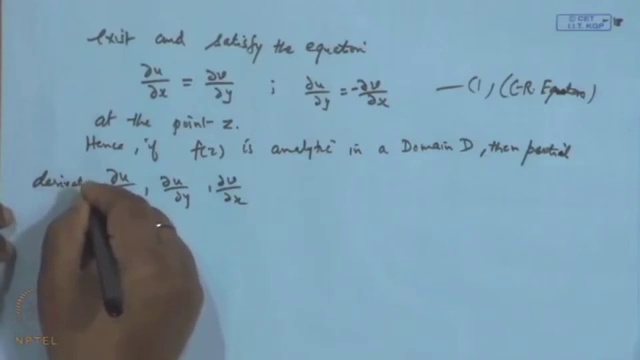 © CET
I.I.T. KGP
exist and satisfy the equation
∂u/∂x = ∂v/∂y ; ∂u/∂y = -∂v/∂x — (1) (C-R. Equations)
at the point z.
Hence, if f(z) is analytic in a Domain D, then partial
∂u/∂y , ∂v/∂x
NPTEL